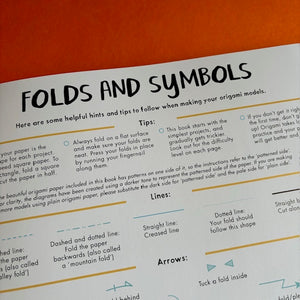 FOLDS AND SYMBOLS
Here are some helpful hints and tips to follow when making your origami models.
Tips:
your paper is the
pe for each project.
eed square paper. To
ctangle, fold a square
ut the paper in half.
Always fold on a flat surface
and make sure your folds are
neat. Press your folds in place
by running your fingernail
along them.
This book starts with the
simplest projects, and
gradually gets trickier.
Look out for the difficulty
level on each page
If you don't get it right
the first time, don't g
up! Origami takes
practice and you'll
before
beautiful origami paper included in this book has patterns on one side of it, so the instructions refer to the 'patterned side'.
or clarity, the diagrams have been created using a darker tone to represent the patterned side of the paper. If you are making
more models using plain origami paper, please substitute the dark side for 'patterned side' and the pale side for 'plain side'.
Lines:
d line:
he paper
s (also called
lley fold')
Dashed and dotted line:
Fold the paper
backwards (also called
a 'mountain fold')
Straight line:
Creased line
Dotted line:
Your fold should
follow this shape
Straight
Cut alon
Arrows:
d behind
Tuck a fold inside